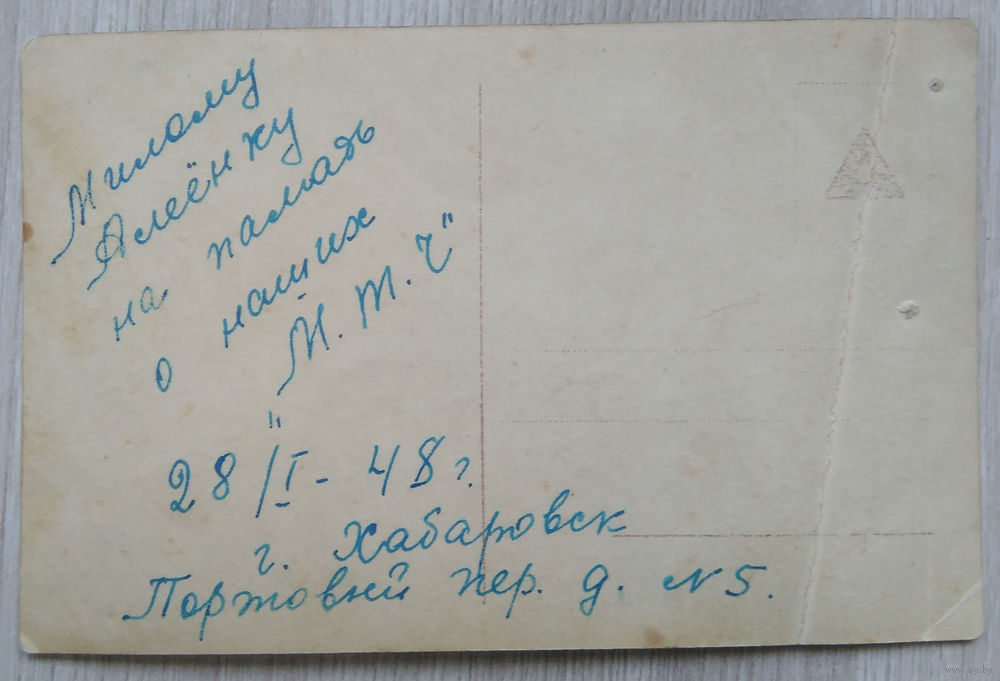 Милому
Алеёнку
на память
о наших
"М. Т. Ч"
28/I - 48 г.
г. Хабаровск
Портовый пер. д. N 5.
www.ay.by